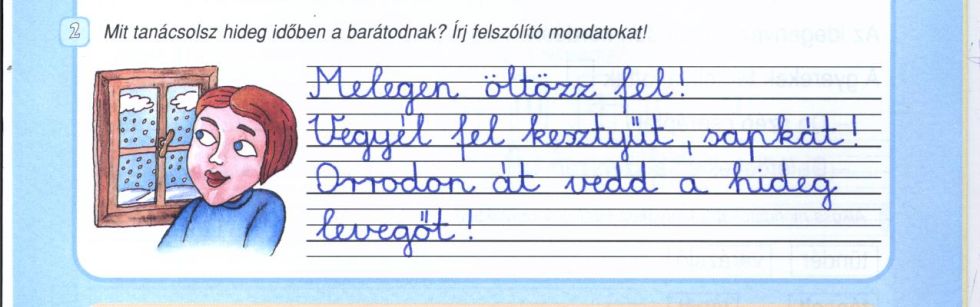 2 Mit tanácsolsz hideg időben a barátodnak? Írj felszólító mondatokat!
Melegen öltözz fel!
Vegyél fel kesztyűt, sapkát!
Orrodon át vedd a hideg
levegőt!